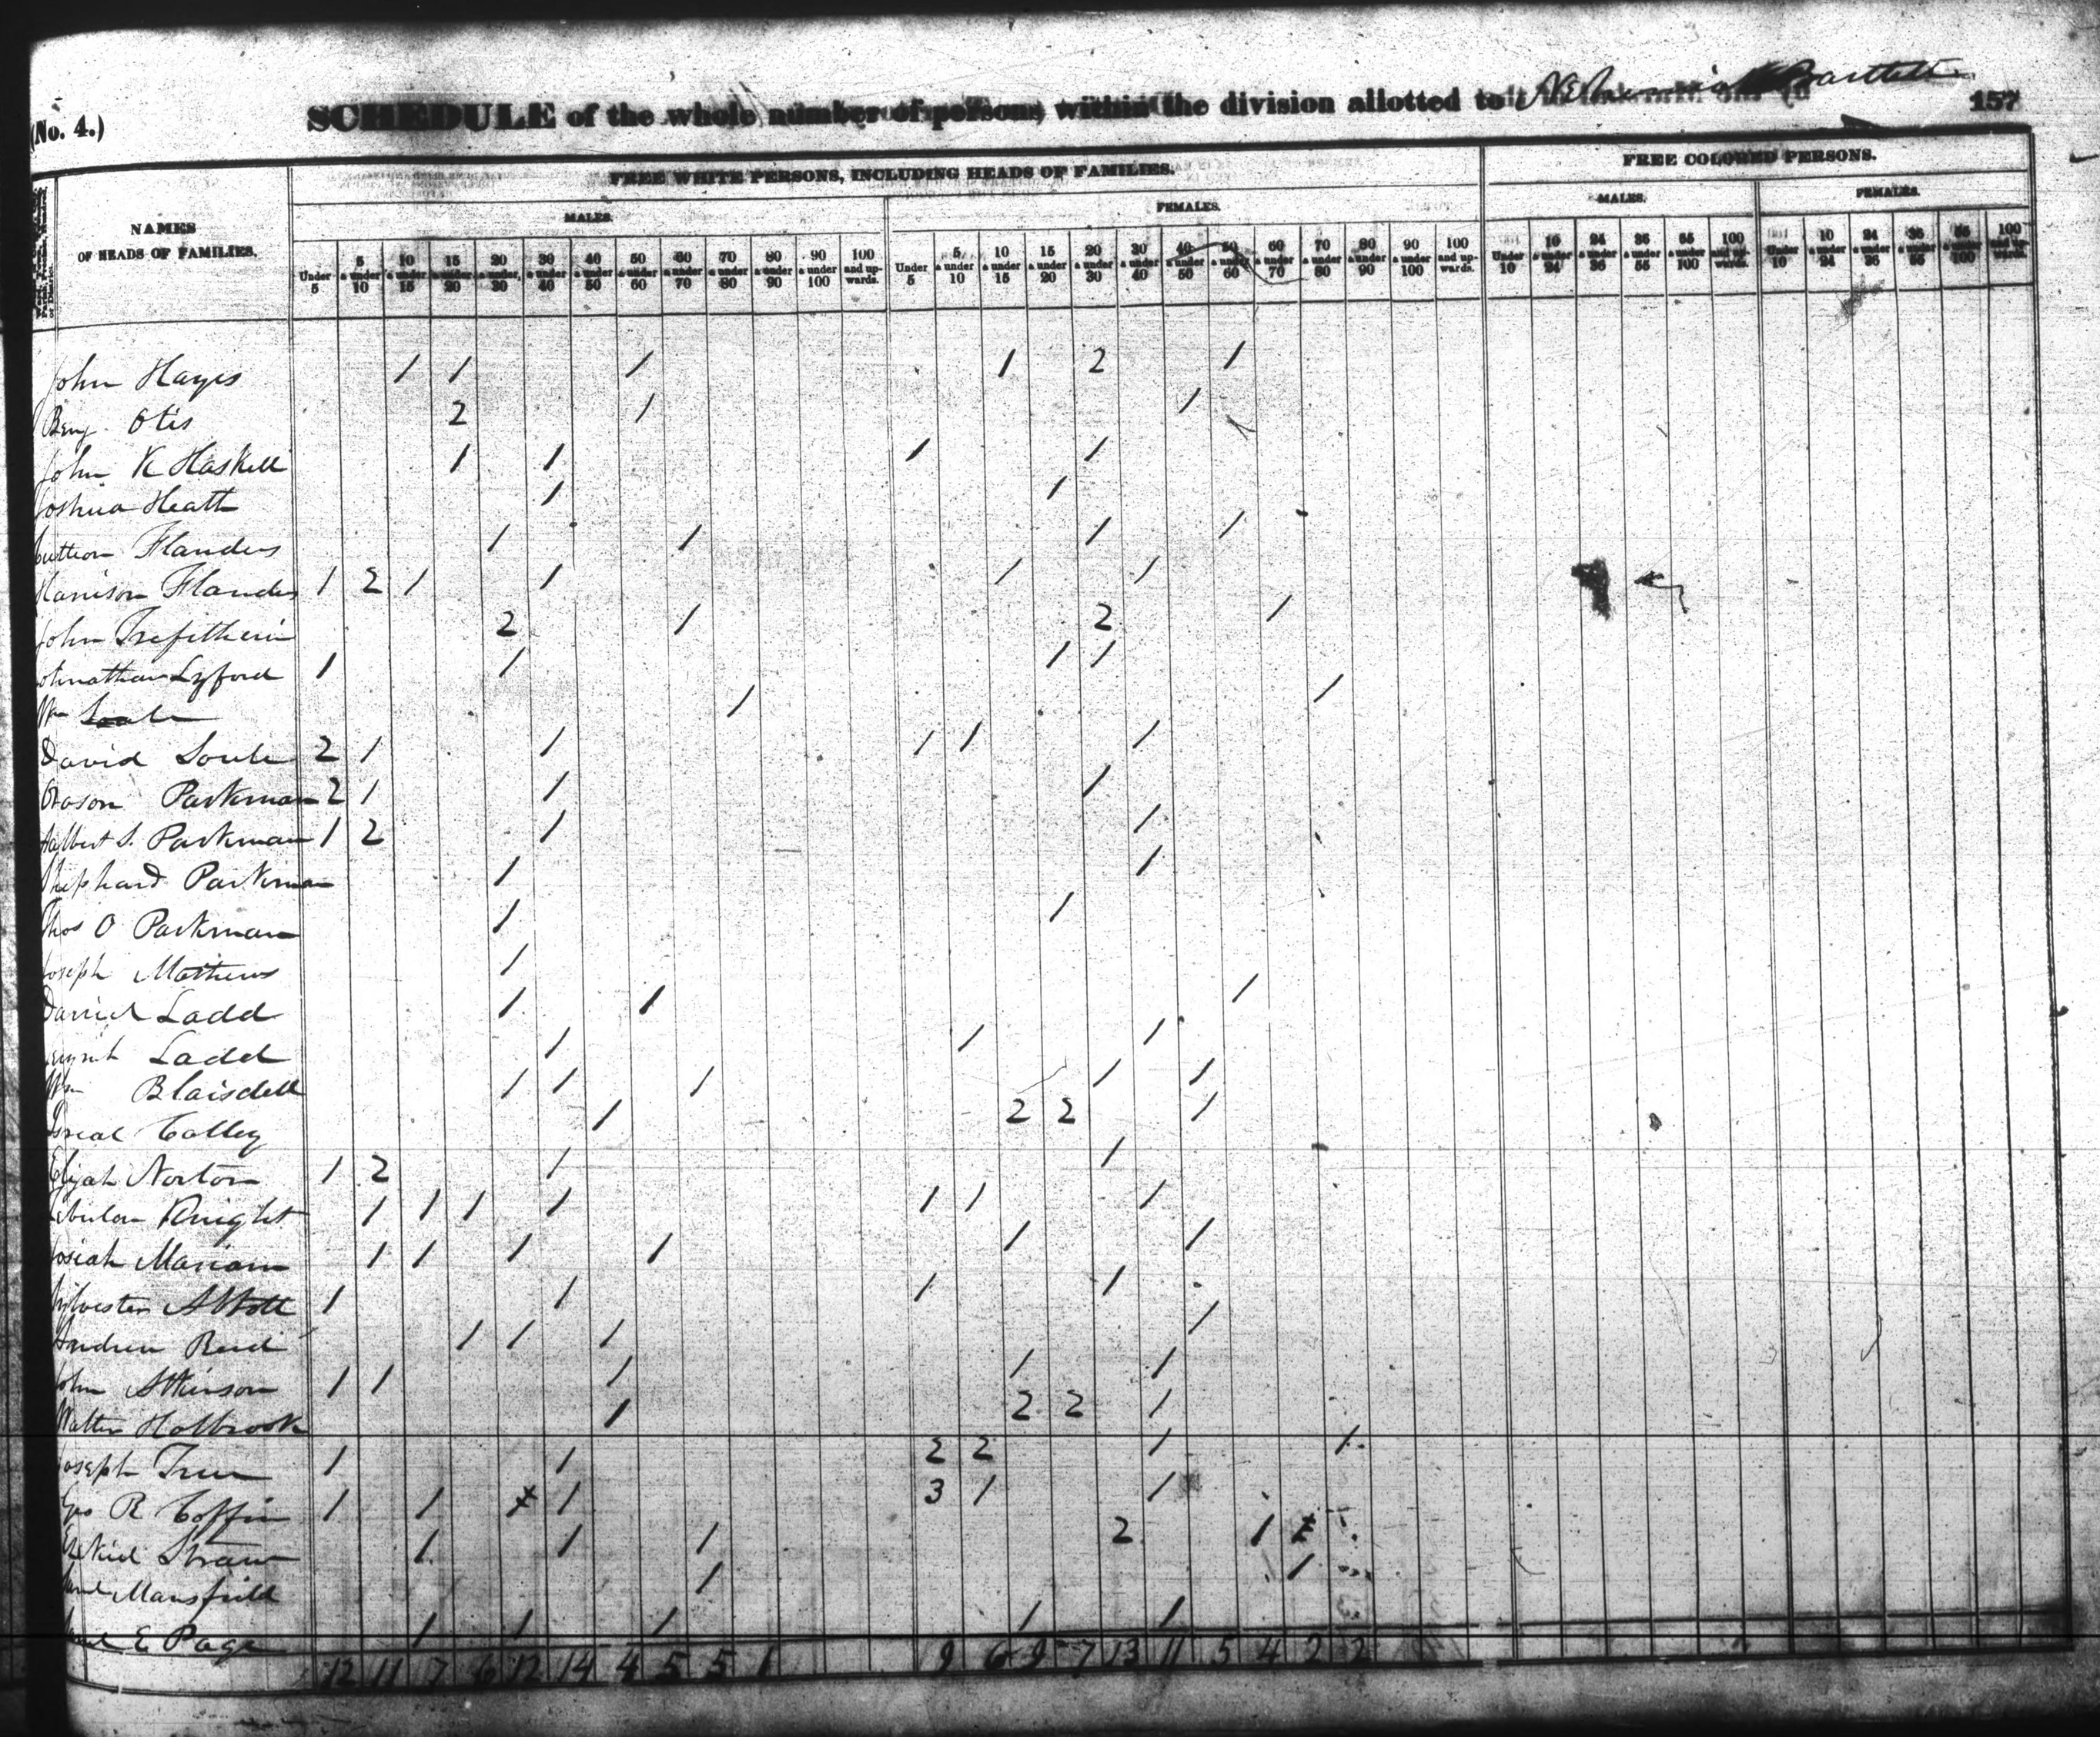 (No. 4.)
SCHEDULE of the whole number of persons within the division allotted to Bartlett 157
FREE WHITE PERSONS, INCLUDING HEADS OF FAMILIES. FREE COLORED PERSONS.
NAMES OF HEADS OF FAMILIES.
MALES. FEMALES. MALES. FEMALES.
Under 5 5 & under 10 10 & under 15 15 & under 20 20 & under 30 30 & under 40 40 & under 50 50 & under 60 60 & under 70 70 & under 80 80 & under 90 90 & under 100 100 and upwards. Under 5 5 & under 10 10 & under 15 15 & under 20 20 & under 30 30 & under 40 40 & under 50 50 & under 60 60 & under 70 70 & under 80 80 & under 90 90 & under 100 100 and upwards. Under 10 10 & under 24 24 & under 36 36 & under 55 55 & under 100 100 and upwards. Under 10 10 & under 24 24 & under 36 36 & under 55 55 & under 100 100 and upwards.
John Hayes 1 1 1 1 2 1
Benj. Otis 2 1 1
John K Haskell 1 1 1 1
Joshua Heath 1 1
Flanders 1 1 1 1
Harrison Flanders 1 2 1 1 1 1
John Trefethern 2 1 2 1
Johnathan Lyford 1 1 1 1
Wm Soule 1 1
David Soule 2 1 1 1 1 1
Parkman 2 1 1 1
S. Parkman 1 2 1 1
Shephard Parkman 1 1
Thos O Parkman 1 1
Joseph Mathews 1
Daniel Ladd 1 1 1
Ladd 1 1 1
Wm Blaisdell 1 1 1 1 1
Isreal Colley 1 2 2 1
Elijah Norton 1 2 1 1
Knight 1 1 1 1 1 1 1
Josiah Mariam 1 1 1 1 1 1
Silvester Abbott 1 1 1 1
Andrew Reed 1 1 1 1
John Atkinson 1 1 1 1 1
Walter Holbrook 1 2 2 1
Joseph True 1 1 2 2 1 1
Geo R Coffin 1 1 1 3 1 1
Ezekiel Straw 1 1 1 2 1
Mansfield 1 1
E Page 1 1 1 1 1
12 11 7 6 12 14 4 5 5 1 9 6 9 7 13 11 5 4 2 2